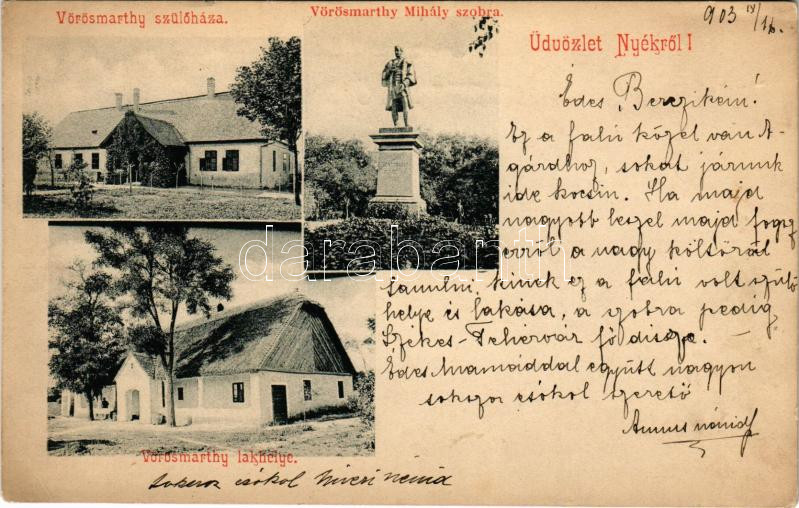 Vörösmarthy szülőháza.
Vörösmarthy Mihály szobra.
903 IV/16.
Üdvözlet Nyékről!
Édes Berezikém!
Ez a falú közel van A-
gárdhoz, sokat járunk
ide kocsin. Ha majd
nagyobb leszel majd fogsz
erről a nagy költőről
tanulni, kinek ez a falú volt szülő
helye és lakása, a szobra pedig
Székes-Fehérvár fő dísze.
Édes Anamáddal együtt nagyon
sokszor csókol szerető
Annus nénid
Vörösmarthy lakhelye.
csókol nénid
darabanth